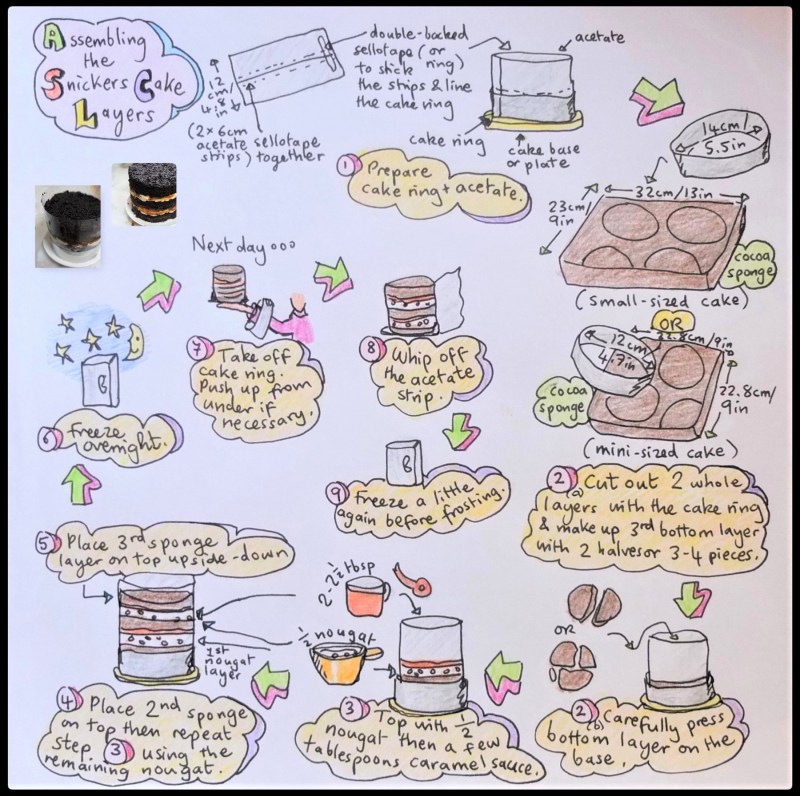 Assembling
the
Snickers Cake
Layers
12
cm/
4.8
in
(2x6cm
acetate
strips)
sellotape
together
double-backed
sellotape (or
to stick ring)
the strips & line
the cake ring
acetate
cake ring
cake base
or plate
① Prepare
cake ring + acetate.
14cm/
5.5in
32cm/13in
23cm/
9in
cocoa
sponge
(small-sized cake)
OR
12cm
4.7in
22.8cm/9in
22.8cm/
9in
cocoa
sponge
(mini-sized cake)
② (a) Cut out 2 whole
layers with the cake ring
& make up 3rd bottom layer
with 2 halves or 3-4 pieces.
OR
② (b) Carefully press
bottom layer on the
base.
2-2½ tbsp
½ nougat
③ Top with ½
nougat then a few
tablespoons caramel sauce.
1st
nougat
layer
④ Place 2nd sponge
on top then repeat
step ③ using the
remaining nougat.
⑤ Place 3rd sponge
layer on top upside-down
⑥ Freeze
overnight.
Next day ooo
⑦ Take off
cake ring.
Push up from
under if
necessary.
⑧ Whip off
the acetate
strip.
⑨ Freeze a little
again before frosting.